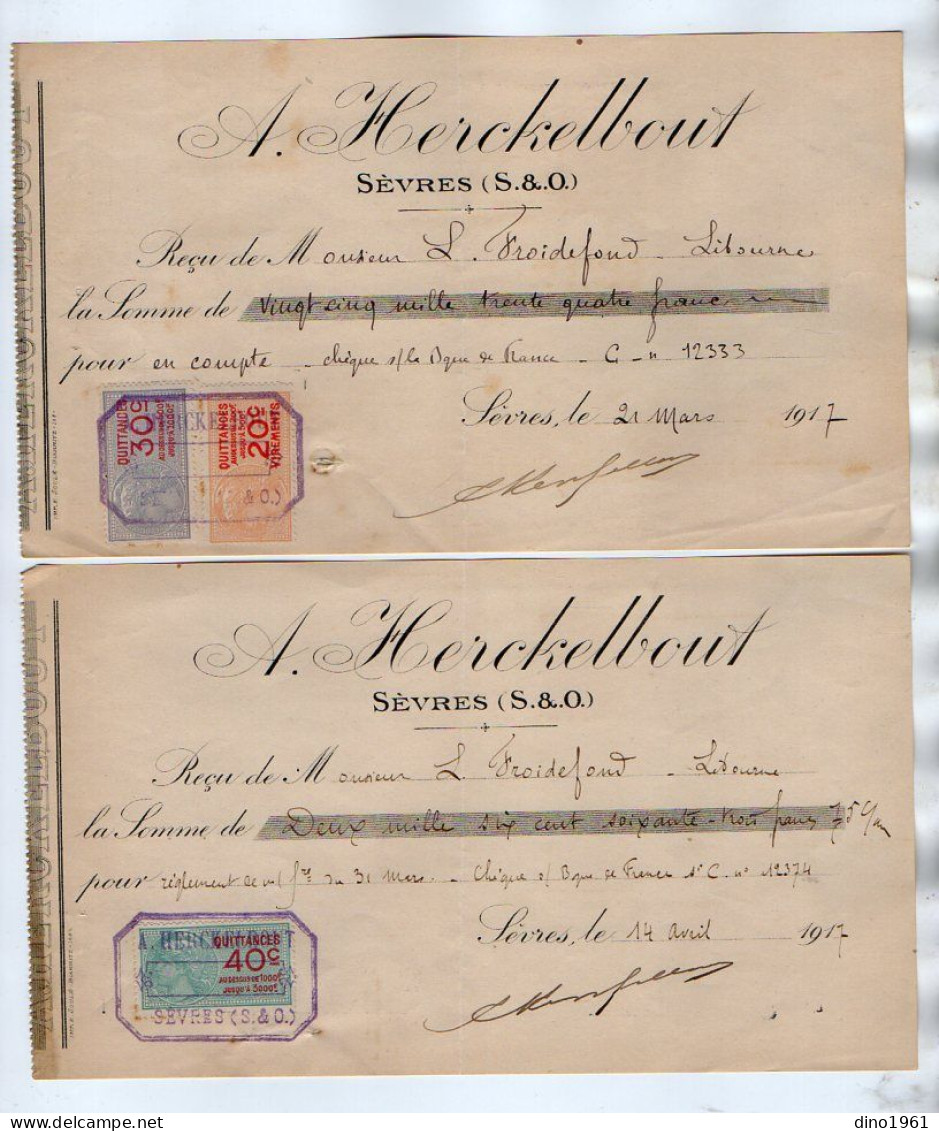 A. Herckelbout
SÈVRES (S.&.O.)
Reçu de Monsieur L. Froidefond - Libourne
la Somme de Vingt cinq mille trente quatre francs
pour en compte - chèque s/la Bque de France - C - n 12333
QUITTANCES 30c AU DESSUS DE
QUITTANCES 20c VIREMENTS
& O.)
Sèvres, le 21 Mars 1917
A. Herckelbout
SÈVRES (S.&.O.)
Reçu de Monsieur L. Froidefond - Libourne
la Somme de Deux mille six cent soixante-trois francs 75 c/m
pour règlement de m/ fre du 31 Mars. - Chèque s/ Bque de France Sie C. no 12374
Sèvres, le 14 avril 1917
A. HERCKELBOUT
QUITTANCES
40c
AU DESSUS DE 1000F
JUSQU'À 3000F
SÈVRES (S.&O.)
dino1961